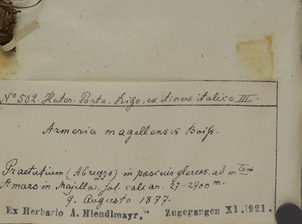 No 502. Huter, Porta, Rigo, ex itinere italico III.
Armeria magellensis Boiss.
Praetutium (Abruzzo) in pascuis glareos. ad m tem
Amaro in Majella, sol. calcar. 27-2900 m.
9. Augusto 1877.
Ex Herbario A. Hiendlmayr. Zugegangen XI.1921.